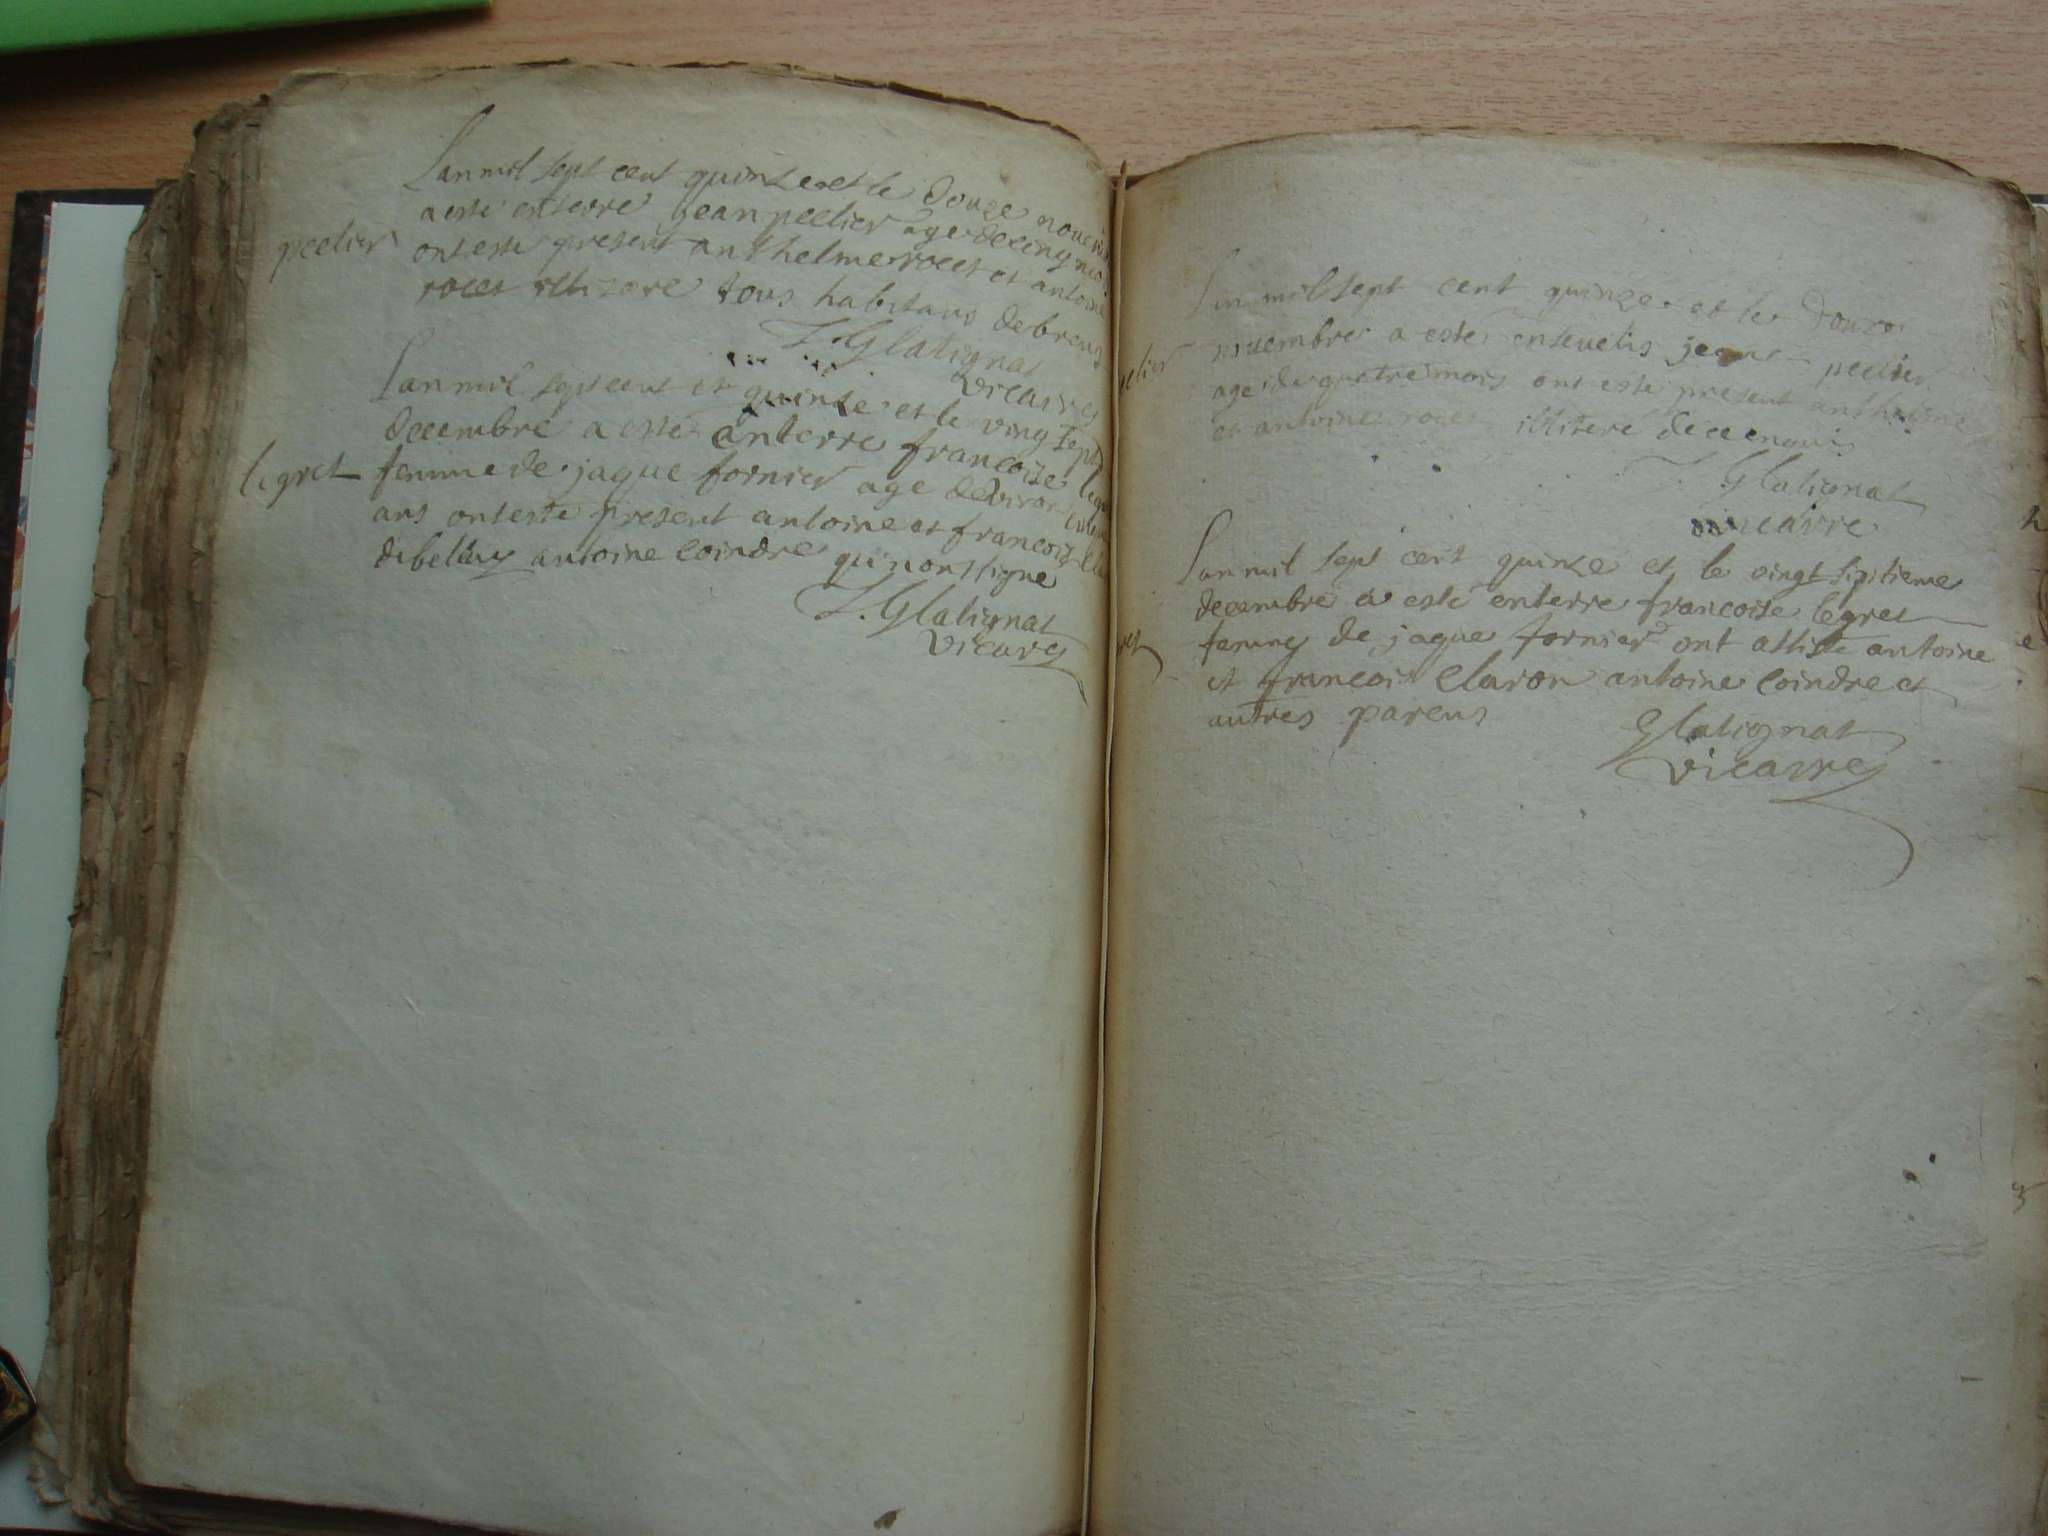 Lan mil sept cent quinze et le douze novem
a este enterre jean peclier age de cinq moi
peclier
ont este present anthelme rocet et antoine
rocet tous habitans de brens
F. Glatignat
vicaire
Lan mil sept cent et quinze et le vingt sept
decembre a este anterre francoise legret
legret
femme de jaque fornier age deviron
ans ont este present antoine et francois
de belley antoine Coindre qui nont signe
F. Glatignat
vicaire
Lan mil sept cent quinze et le douze
novembre a este ensevelis jean peclier
age de quatre mois ont este present anthelme
et antoine rocet illitere de ce enquis
F. Glatignat
vicaire
Lan mil sept cent quinze et le vingt siptieme
decembre a este enterre francoise legret
femme de jaque fornier ont assiste antoine
et francois Claron antoine Coindre et
autres parens
Glatignat
vicaire